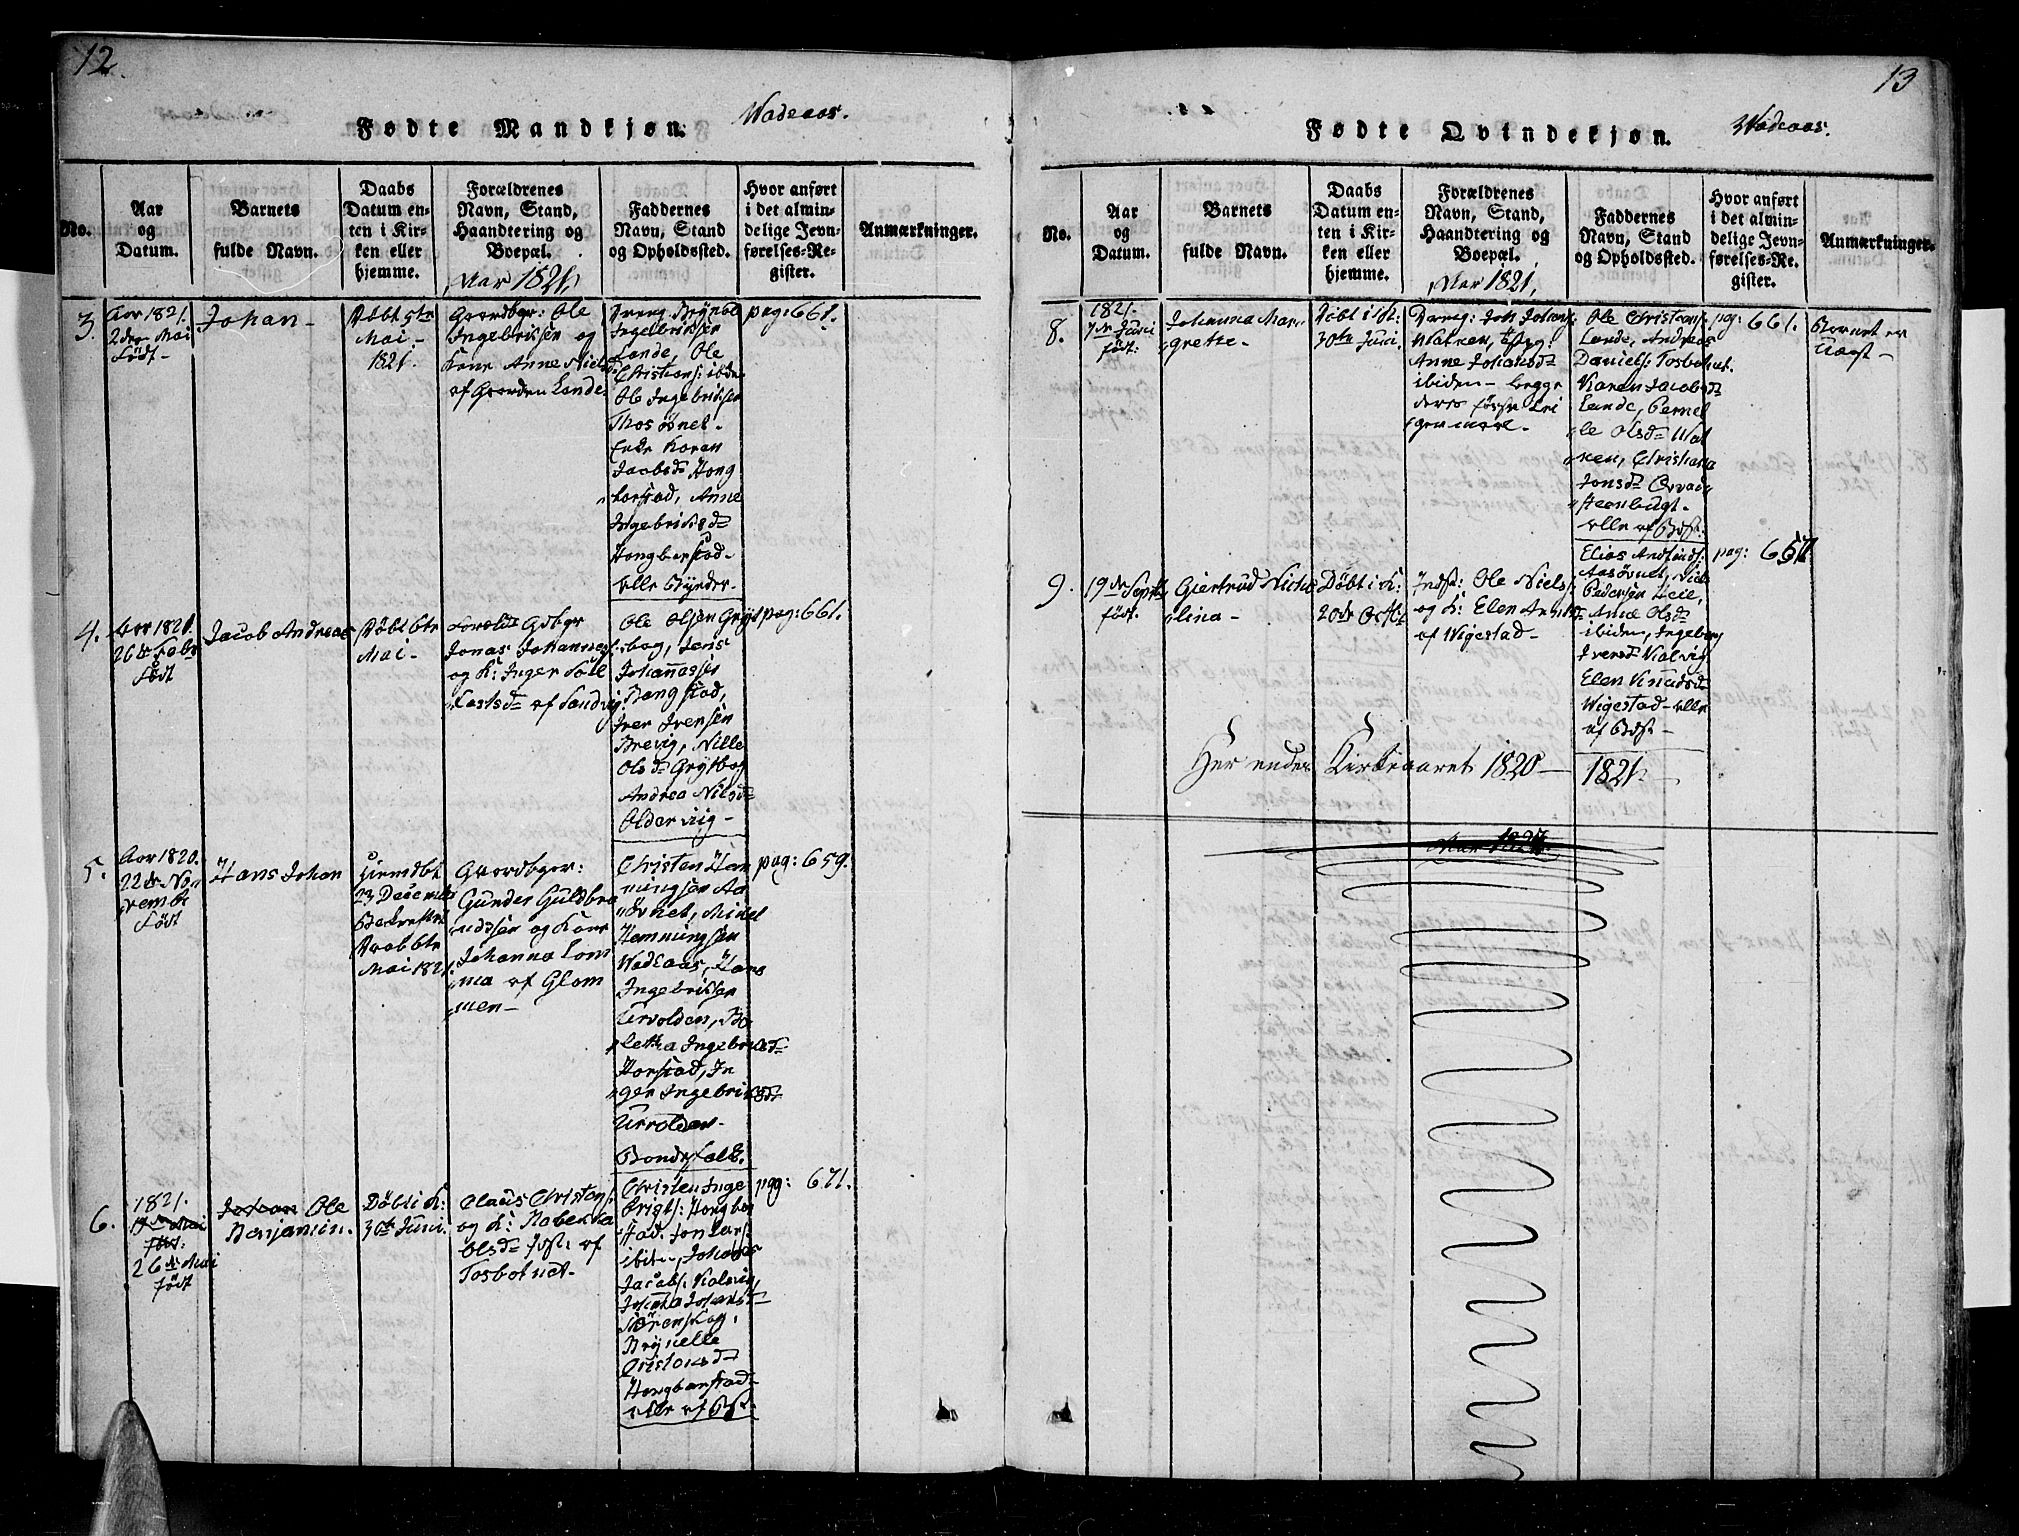 12.
Fødte Mandkjøn.
Wadeaas.
No.
Aar
og
Datum.
Barnets
fulde Navn.
Daabs
Datum en-
ten i Kir-
ken eller
hjemme.
Forældrenes
Navn, Stand,
Haandtering og
Boepæl.
Aar 1821,
Faddernes
Navn, Stand
og Opholdssted.
Hvor anført
i det almin-
delige Jevn-
førelses-Re-
gister.
Anmærkninger.
3.
Aar 1821.
2den Mai
Født
Johan
Døbt 5te
Mai
1821.
Gaardbgr: Ole
Ingebritsen og
Kone Anne Niels
af Gaarden Lande
Ingebritsen
Lande, Ole
Christians: ibiden
Ole Ingebritsen
Enke Karen
Jacobsd
Anne
Ingebritsd
pag: 661.
4.
Aar 1821.
26de Febr
Født
Jacob Andreas
Døbt 6te
Mai
Gdbgr
Jonas Johannes
og K: Inger
af Sandvig
Ole Olsen Gryt
bog, Jens
Johannessen
Iver Iversen
Brevig, Nille
Olsd Grytbog
Andrea Nilsd
Oldervig
pag: 661.
5.
Aar 1820.
22de No-
vembr
Født
Hans Johan
Hiemdbt
23 Decembr
Daab 6te
Mai 1821.
Gaardbgr:
Gunder Guldbra
ndsen og Kone
Johanna Lom
ma af Glom
men
Christen Hem
mingsen Aa
søvnet, Mikel
Hemmingsen
Wadeaas, Hans
Ingebritsen
Urvolden, Bo
lettha Ingebritsd
Horstad, In
ger Ingebritsd
Urvolden
Bondefolk.
pag: 659.
6.
1821.
26de Mai
Født
Johan Ole
Benjamin
Døbt i K:
3die Juni.
Claus Christens:
og K: Rebekka
Olsd Inds: af
Tosbotnet
Christen Inge
brigts: Hongbog
stad. Jon Lars:
ibiden, Johannes
Jacobs: Kalvig,
Johanna Johansd
Sørenskog,
Brynelle
Cristensd
Hongbarstad
alle af Bdst.
pag: 671.
13
Fødte Qvindekjøn.
Wadeaas.
No.
Aar
og
Datum.
Barnets
fulde Navn.
Daabs
Datum en-
ten i Kir-
ken eller
hjemme.
Forældrenes
Navn, Stand,
Haandtering og
Boepæl.
Aar 1821,
Faddernes
Navn, Stand
og Opholdssted.
Hvor anført
i det almin-
delige Jevn-
førelses-Re-
gister.
Anmærkninger.
8.
1821.
7de Juni
født:
Johanna Mar
grette
Døbt i K:
30te Juni.
Dreng: Joh Johans:
Watnen, & Pig:
Anne Johansd
ibiden begge
deres første Lei
germaal.
Ole Christians:
Lande, Andreas
Daniels: Tosbotnet.
Karen Jacobsd
Lande, Pernel
le Olsd Wat
nen, Christiana
Jonsd
steenbugt
alle af Bdst:
pag: 661.
Barnet er
Uægt
9.
19de Septb
født.
Giertrud Nicho
lina
Døbt i K:
20de Octb
Inds: Ole Niels:
og K: Elen
af Wigestad
Elias
Aasøvnet, Niels
Pedersen Leie,
Ane Olsd
ibiden, Ingeborg
Iversd Kalvig
Elen Knudsd
Wigestad alle
af Bdst
pag: 657
Her ender Kirkeaaret 1820 — 1821.